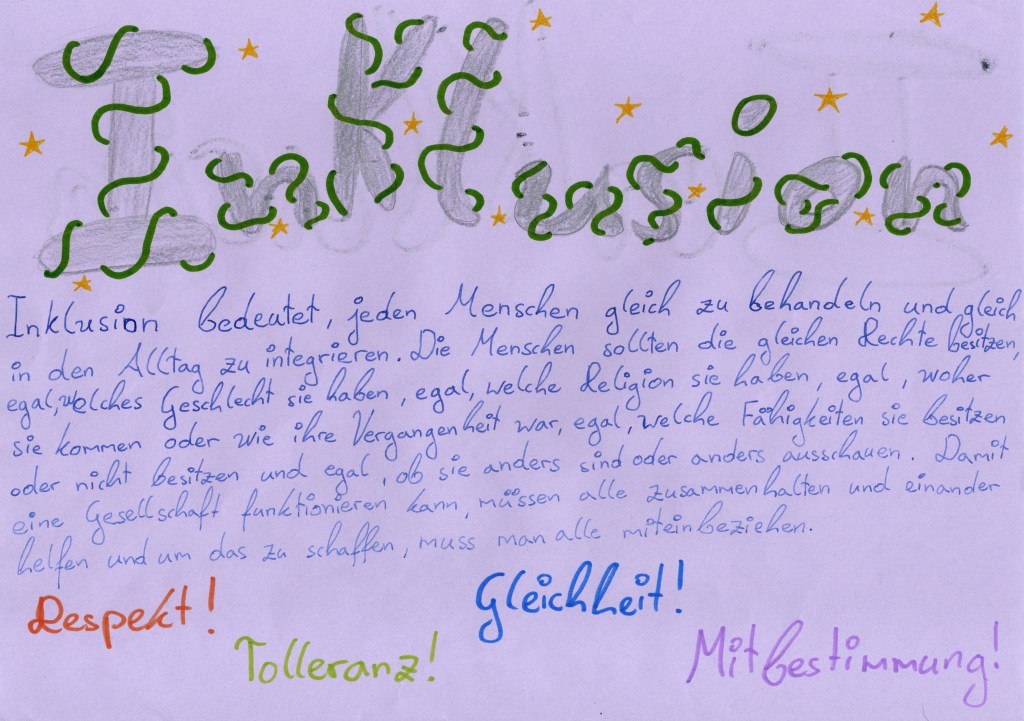 InKlusion
Inklusion bedeutet, jeden Menschen gleich zu behandeln und gleich
in den Alltag zu integrieren. Die Menschen sollten die gleichen Rechte besitzen,
egal, welches Geschlecht sie haben, egal, welche Religion sie haben, egal, woher
sie kommen oder wie ihre Vergangenheit war, egal, welche Fähigkeiten sie besitzen
oder nicht besitzen und egal, ob sie anders sind oder anders ausschauen. Damit
eine Gesellschaft funktionieren kann, müssen alle zusammenhalten und einander
helfen und um das zu schaffen, muss man alle miteinbeziehen.
Respekt!
Gleichheit!
Tolleranz!
Mitbestimmung!